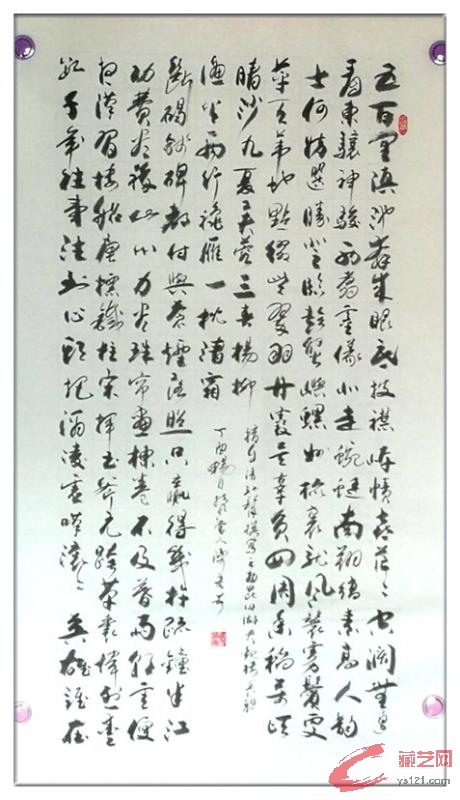 五百里滇池奔來眼底披襟岸幘喜茫茫空闊無邊
看東驤神駿西翥靈儀北走蜿蜒南翔縞素高人韻
士何妨選勝登臨趁蟹嶼螺州梳裹就風鬟霧鬢更
蘋天葦地點綴些翠羽丹霞莫辜負四周香稻萬頃
晴沙九夏芙蓉三春楊柳
數千年往事注到心頭把酒凌虛嘆滾滾英雄誰在
想漢習樓船唐標鐵柱宋揮玉斧元跨革囊偉烈豐
功費盡移山心力盡珠帘畫棟卷不及暮雨朝雲便
斷碣殘碑都付與蒼煙落照只贏得幾杵疏鐘半江
漁火兩行秋雁一枕清霜
清孫髯撰寫之大觀樓長聯
丁酉暢月
藏艺网
ys121.com